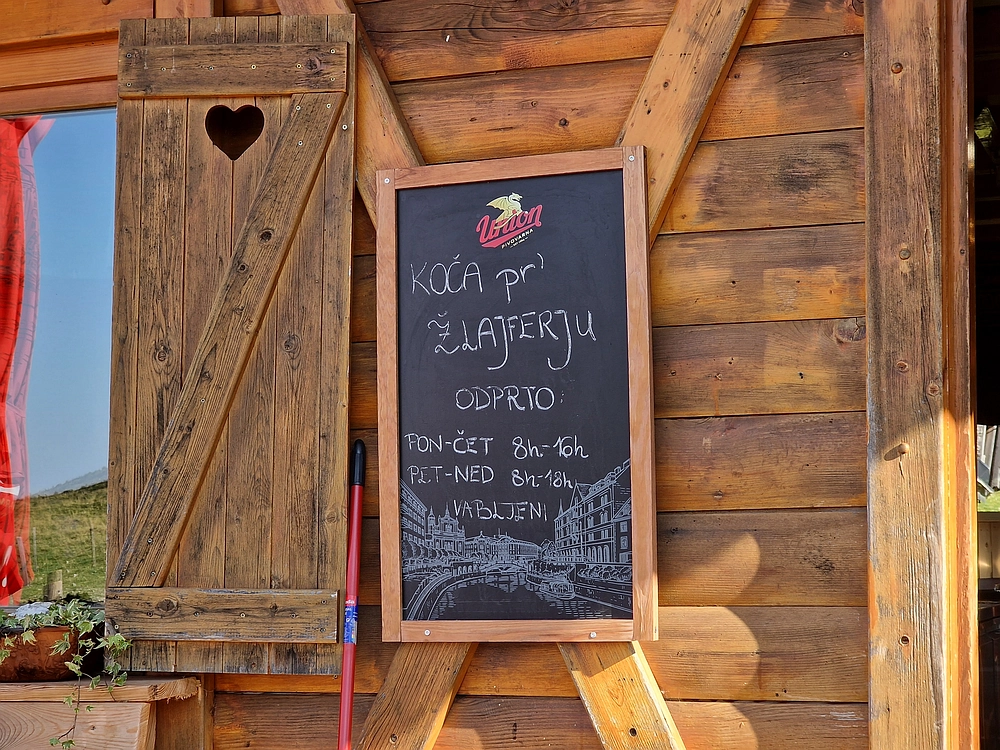 Union
PIVOVARNA
KOČA pr'
ŽLAJFERJU
ODPRTO:
PON-ČET 8h-16h
PET-NED 8h-18h
VABLJENI